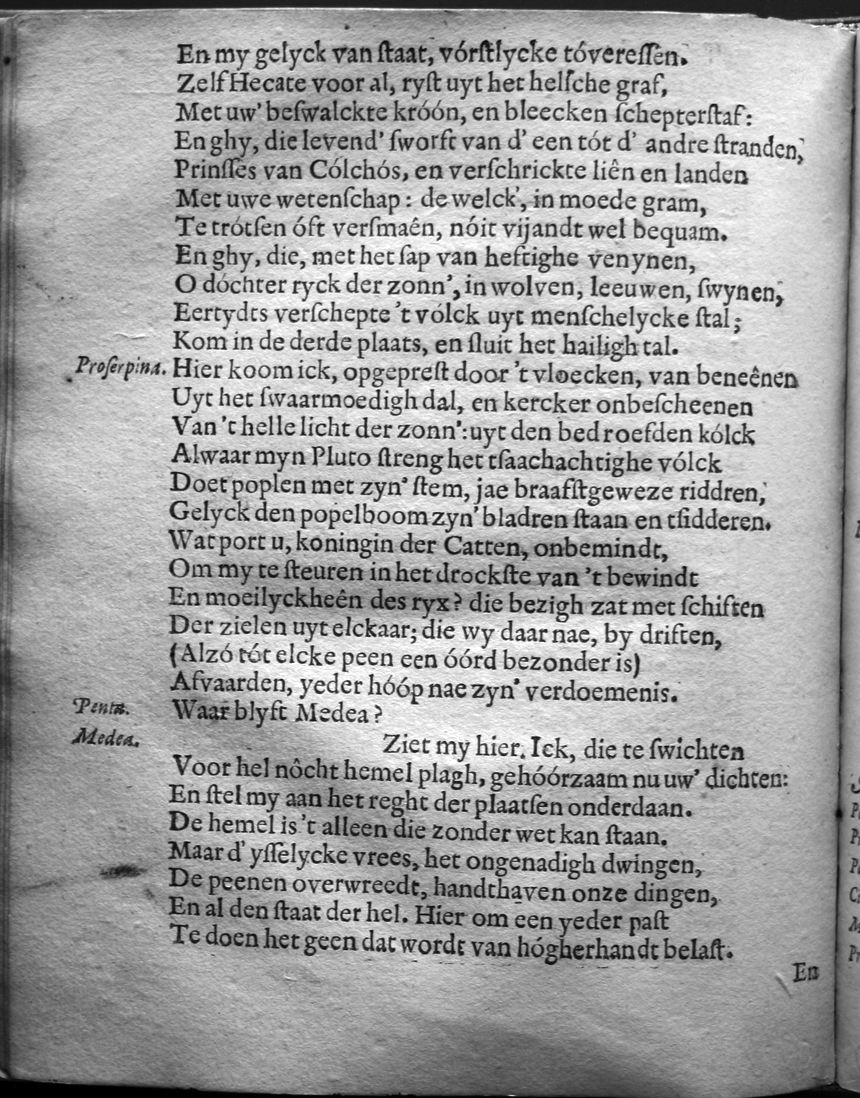 En my gelyck van ſtaat, vórſtlycke tóvereſſen.
Zelf Hecate voor al, ryſt uyt het helſche graf,
Met uw' beſwalckte króón, en bleecken ſchepterſtaf:
En ghy, die levend' ſworft van d' een tót d' andre ſtranden,
Prinſſes van Cólchós, en verſchrickte liên en landen
Met uwe wetenſchap: de welck', in moede gram,
Te trótſen óft verſmaên, nóit vijandt wel bequam.
En ghy, die, met het ſap van heftighe venynen,
O dóchter ryck der zonn', in wolven, leeuwen, ſwynen,
Eertydts verſchepte 't vólck uyt menſchelycke ſtal;
Kom in de derde plaats, en ſluit het hailigh tal.
Proſerpina. Hier koom ick, opgepreſt door 't vloecken, van beneênen
Uyt het ſwaarmoedigh dal, en kercker onbeſcheenen
Van 't helle licht der zonn': uyt den bedroefden kólck
Alwaar myn Pluto ſtreng het tſaachachtighe vólck
Doet poplen met zyn' ſtem, jae braafſtgeweze riddren,
Gelyck den popelboom zyn' bladren ſtaan en tſidderen.
Wat port u, koningin der Catten, onbemindt,
Om my te ſteuren in het drockſte van 't bewindt
En moeilyckheên des ryx? die bezigh zat met ſchiften
Der zielen uyt elckaar; die wy daar nae, by driften,
(Alzó tót elcke peen een óórd bezonder is)
Afvaarden, yeder hóóp nae zyn' verdoemenis.
Penta. Waar blyft Medea?
Medea. Ziet my hier. Ick, die te ſwichten
Voor hel nôcht hemel plagh, gehóórzaam nu uw' dichten:
En ſtel my aan het reght der plaatſen onderdaan.
De hemel is 't alleen die zonder wet kan ſtaan.
Maar d' yſſelycke vrees, het ongenadigh dwingen,
De peenen overwreedt, handthaven onze dingen,
En al den ſtaat der hel. Hier om een yeder paſt
Te doen het geen dat wordt van hógherhandt belaſt.
En